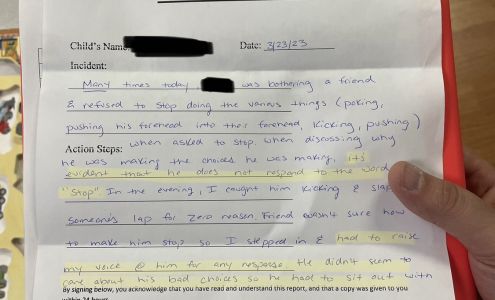 Child's Name Date: 3/23/23
Incident:
Many times today, was bothering a friend
& refused to stop doing the various things (poking,
pushing his forehead into their forehead, kicking, pushing)
when asked to stop. When discussing why
Action Steps:
he was making the choices he was making, its
evident that he does not respond to the word
"stop" In the evening, I caught him kicking & slap
someone's lap for zero reason. Friend wasn't sure how
to make him stop so I stepped in & had to raise
my voice @ him for any response. He didn't seem to
care about his bad choices so he had to sit out with
By signing below, you acknowledge that you have read and understand this report, and that a copy was given to you
within 24 hours